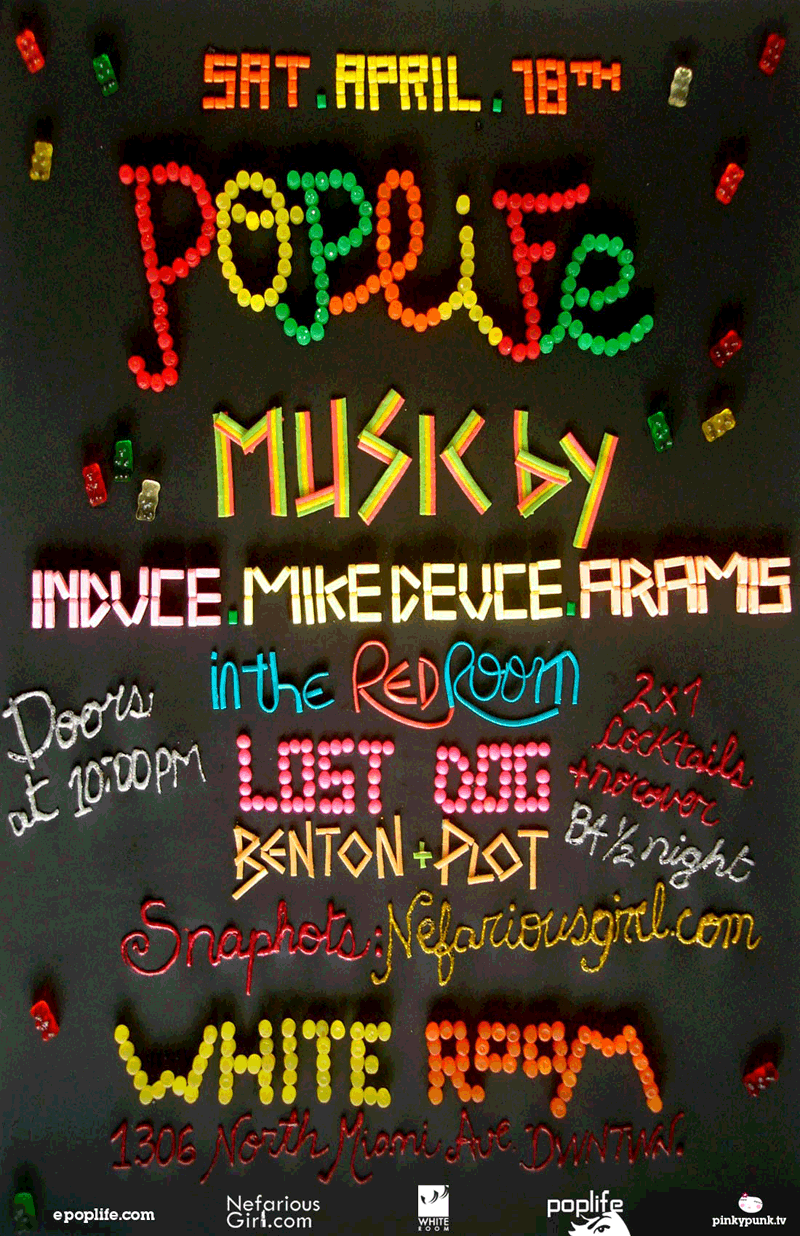 SAT. APRIL. 18TH
POPLIFE
MUSIC by
INDUCE. MIKE DEUCE. ARAMIS
in the RED ROOM
Doors
at 10:00PM
LOST DOG
BENTON + PLOT
2x1
Cocktails
+ no cover
B4 1/2 night
Snaphots: Nefariousgirl.com
WHITE ROOM
1306 North Miami Ave. DWNTWN.
epoplife.com
Nefarious
Girl.com
WHITE
ROOM
poplife
pinkypunk.tv